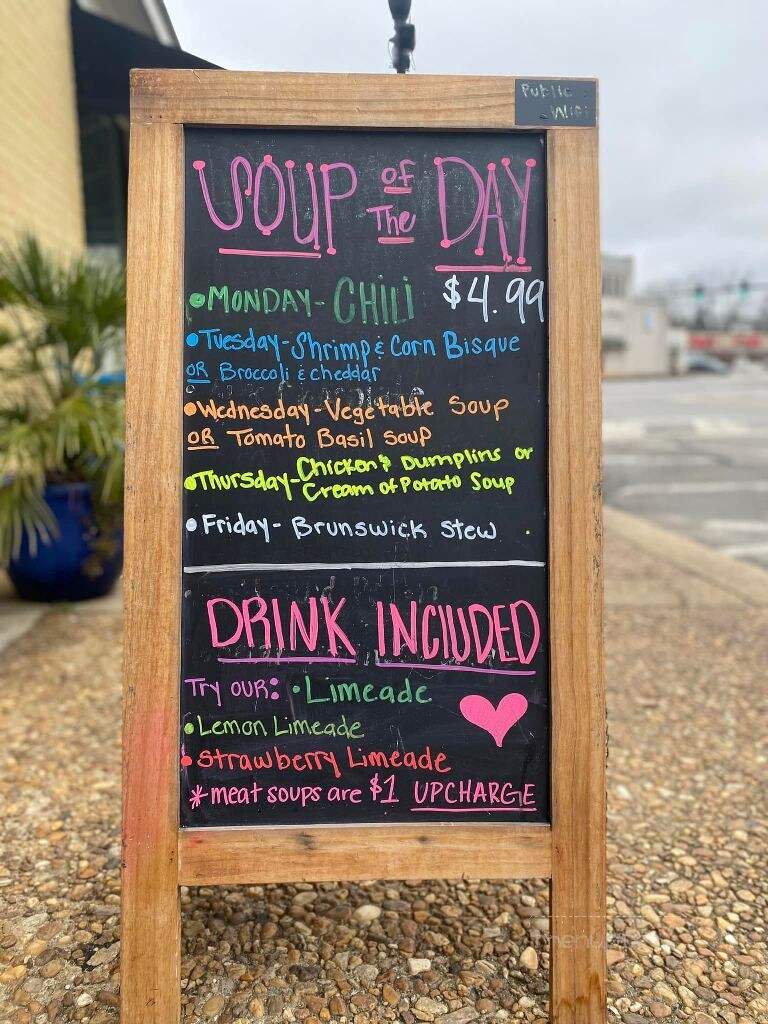 Public
Wifi
SOUP of The DAY
•MONDAY- CHILI $4.99
•Tuesday-Shrimp & Corn Bisque
OR Broccoli & cheddar
•Wednesday-Vegetable Soup
OR Tomato Basil soup
•Thursday-Chicken & Dumplins or
Cream of Potato Soup
•Friday- Brunswick stew
DRINK INCLUDED
Try our: •Limeade
•Lemon Limeade
•Strawberry Limeade
*meat soups are $1 UPCHARGE